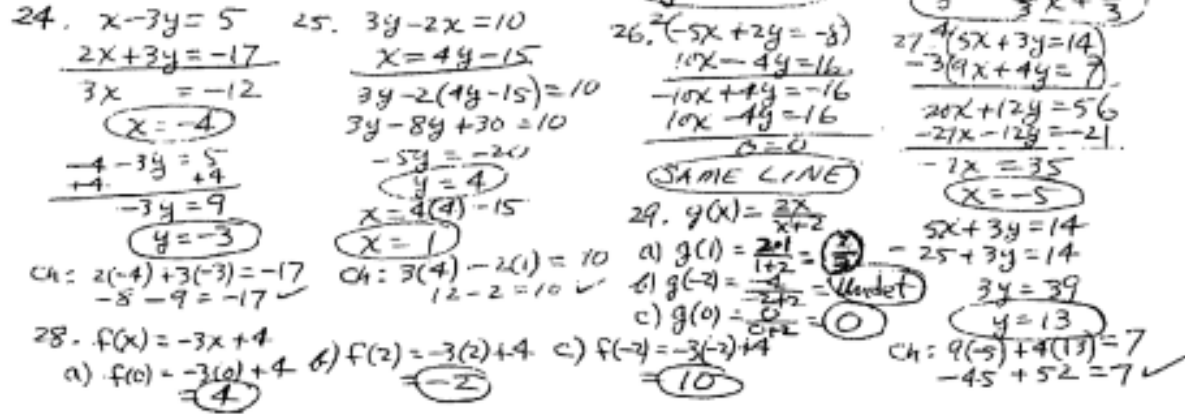 24. x-3y=5
2x+3y=-17
3x =-12
x=-4
-4-3y=5
+4 +4
-3y=9
y=-3
Ch: 2(-4)+3(-3)=-17
-8-9=-17 ✓
25. 3y-2x=10
x=4y-15
3y-2(4y-15)=10
3y-8y+30=10
-5y=-20
y=4
x=4(4)-15
x=1
Ch: 3(4)-2(1)=10
12-2=10 ✓
26. 2(-5x+2y=-8)
10x-4y=16
-10x+4y=-16
10x-4y=16
0=0
SAME LINE
27. 4(5x+3y=14)
-3(9x+4y=7)
20x+12y=56
-27x-12y=-21
-7x=35
x=-5
5x+3y=14
-25+3y=14
3y=39
y=13
Ch: 9(-5)+4(13)=7
-45+52=7 ✓
28. f(x)=-3x+4
a) f(0)=-3(0)+4
=4
b) f(2)=-3(2)+4
=-2
c) f(-2)=-3(-2)+4
=10
29. g(x)=2x/x+2
a) g(1)=2·1/1+2=2/3
b) g(-2)=-4/-2+2=Undet
c) g(0)=0/0+2=0